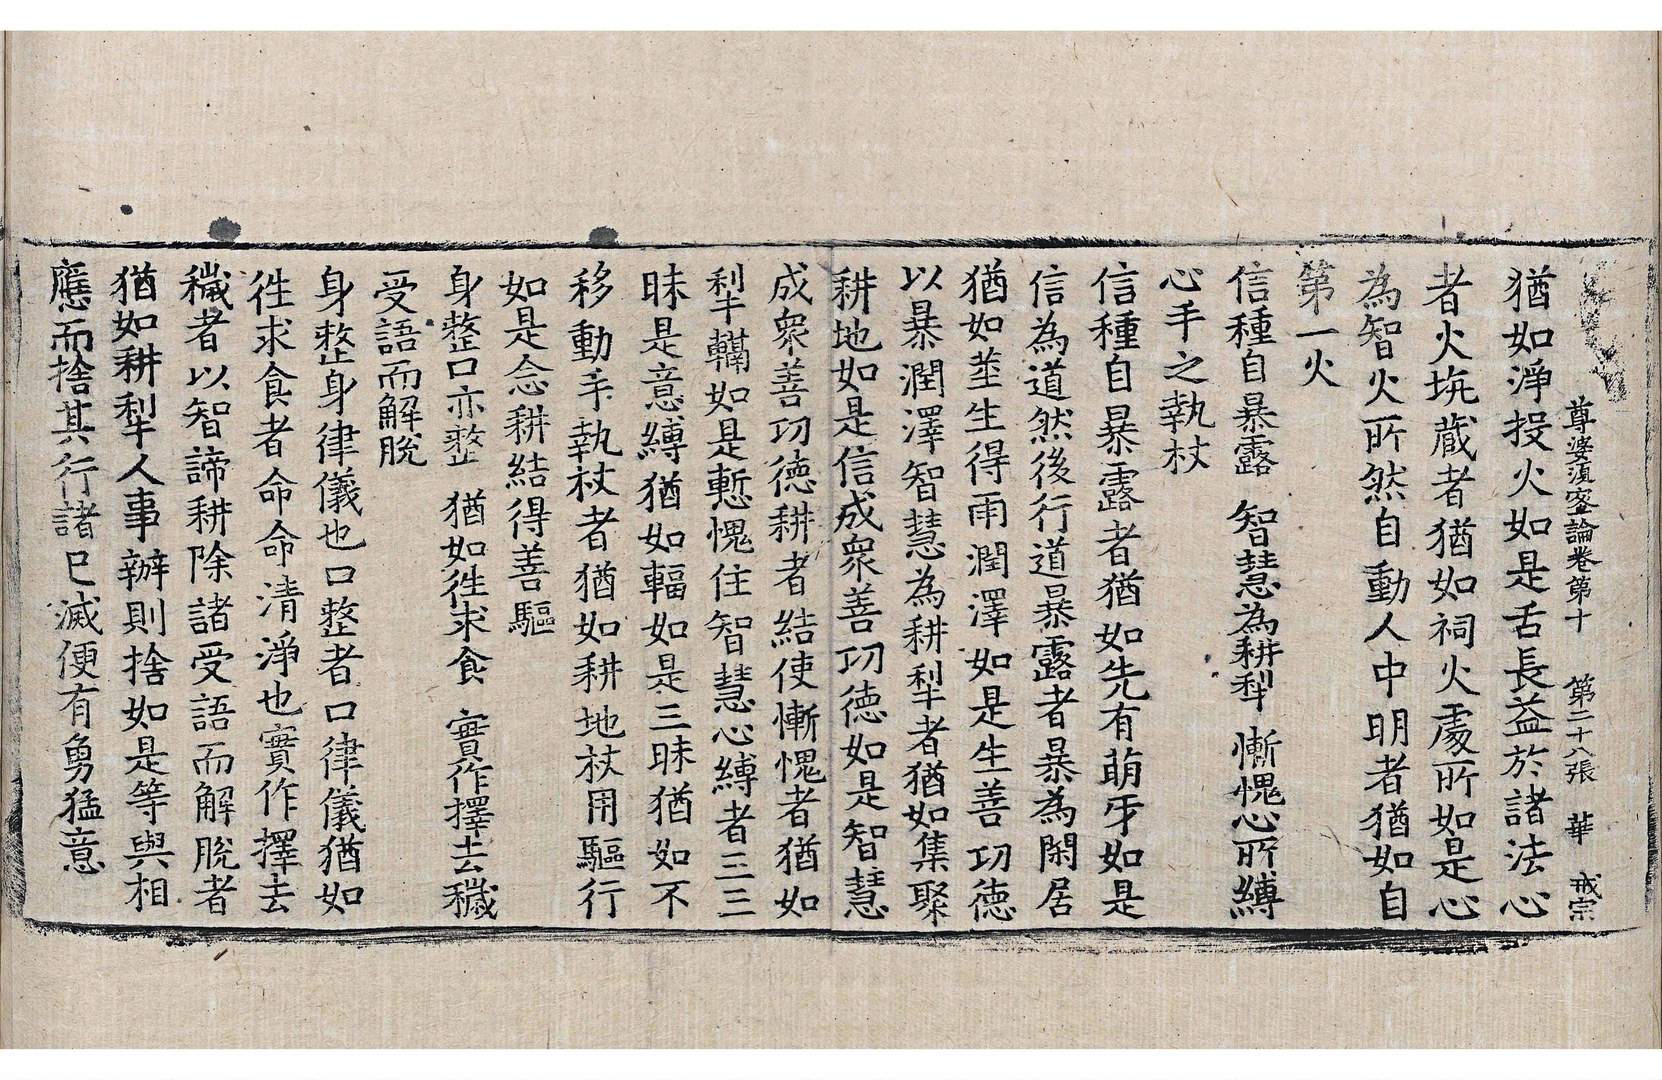 尊婆湏宻論卷第十　第二十八張　華　戒宗
猶如淨投火如是舌長益於諸法心
者火坑蔵者猶如祠火處所如是心
為智火所然自動人中明者猶如自
第一火
信種自暴露　智慧為耕犁　慚愧心所縛
心手之執杖
信種自暴露者猶如先有萌牙如是
信為道然後行道暴露者暴為閑居
猶如𦵔生得雨潤澤如是生善功德
以暴潤澤智慧為耕犁者猶如集聚
耕地如是信成衆善功德如是智慧
成衆善功德耕者結使慚愧者猶如
犁轅如是慙愧住智慧心縛者三三
昧是意縛猶如輻如是三昧猶如不
移動手執杖者猶如耕地杖用驅行
如是念耕結得善驅
身整口亦整　猶如徃求食　實作擇去穢
受語而解脫
身整身律儀也口整者口律儀猶如
徃求食者命命清淨也實作擇去
穢者以智諦耕除諸受語而解脫者
猶如耕犁人事辦則捨如是等與相
應而捨其行諸已滅便有勇猛意